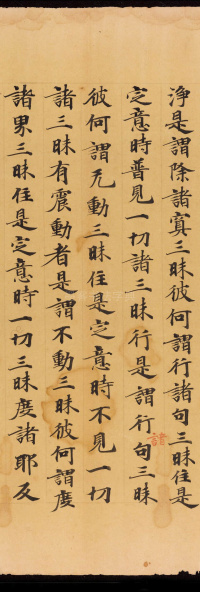 淨是謂除諸冥三昧彼何謂行諸句三昧住是
定意時普見一切諸三昧行是謂行句三昧
彼何謂无動三昧住是定意時不見一切
諸三昧有震動者是謂不動三昧彼何謂度
諸界三昧住是定意時一切三昧度諸耶及